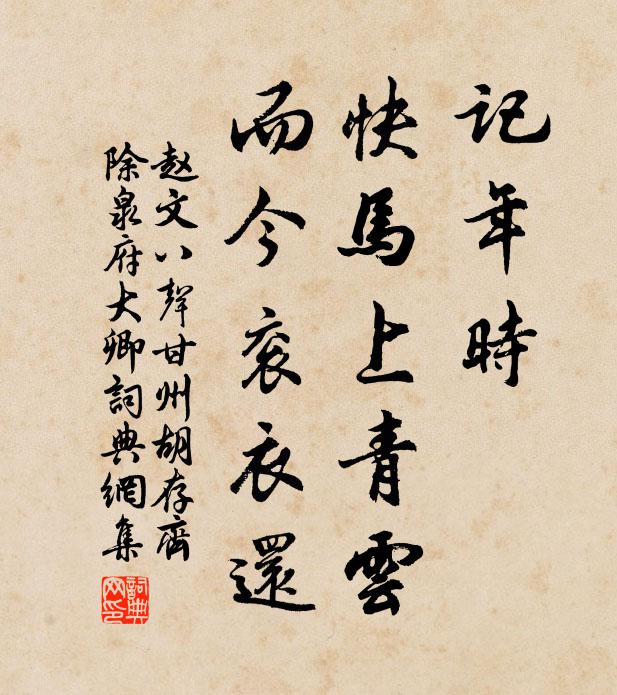 記年時
快馬上青雲
而今衮衣還
赵文八聲甘州胡存齊
除泉府大卿詞典網集
詞典網印